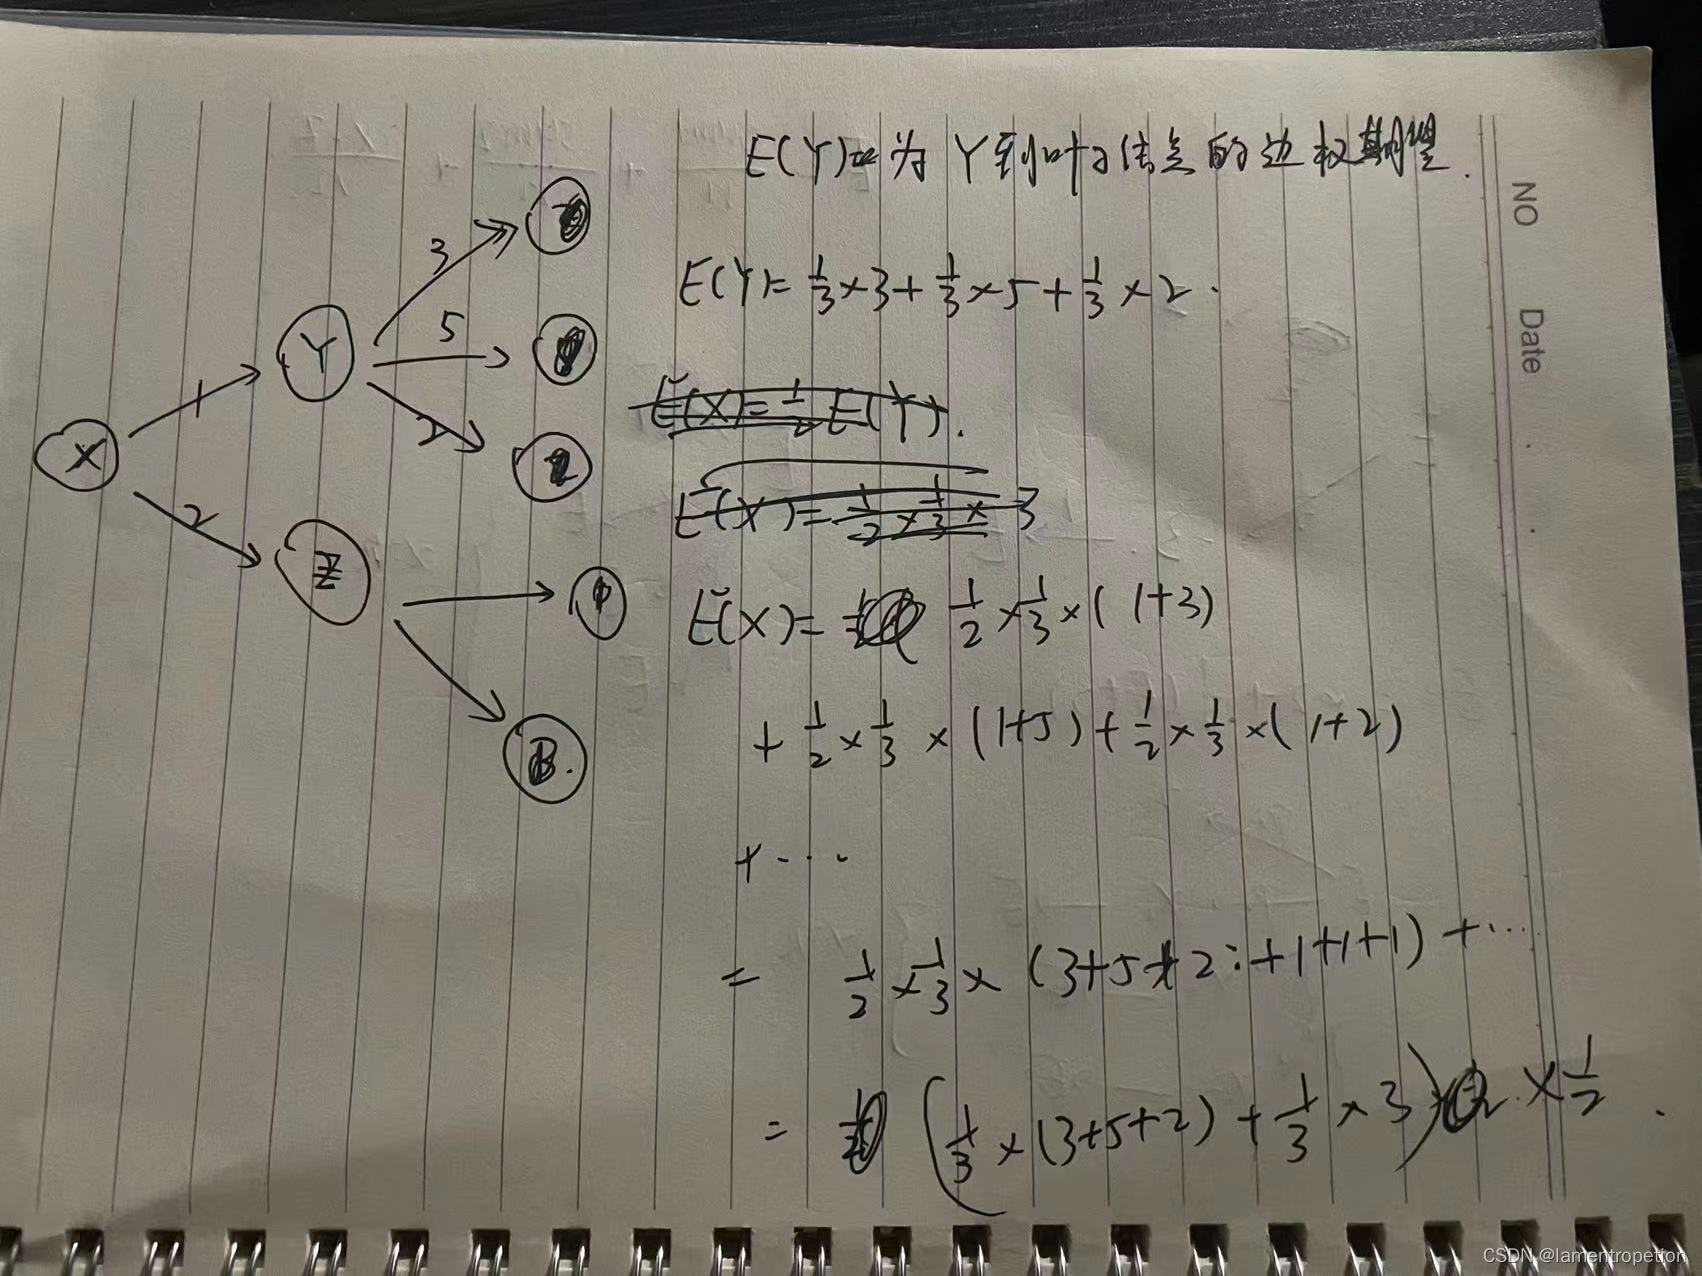 E(Y)为 Y到叶子结点的边权期望.
E(Y)= 1/3 × 3 + 1/3 × 5 + 1/3 × 2 .
E(X)= 1/2 E(Y).
E(X)= 1/2 × 1/3 × 3
E(X)= 1/2 × 1/3 × ( 1+3)
+ 1/2 × 1/3 × (1+5) + 1/2 × 1/3 × ( 1+2)
+ ...
= 1/2 × 1/3 × (3+5+2 +1+1+1) + ...
= ( 1/3 × (3+5+2) + 1/3 × 3 ) × 1/2 .
X
1
2
Y
Z
3
5
2
B.
NO
Date
CSDN @lamentropetion